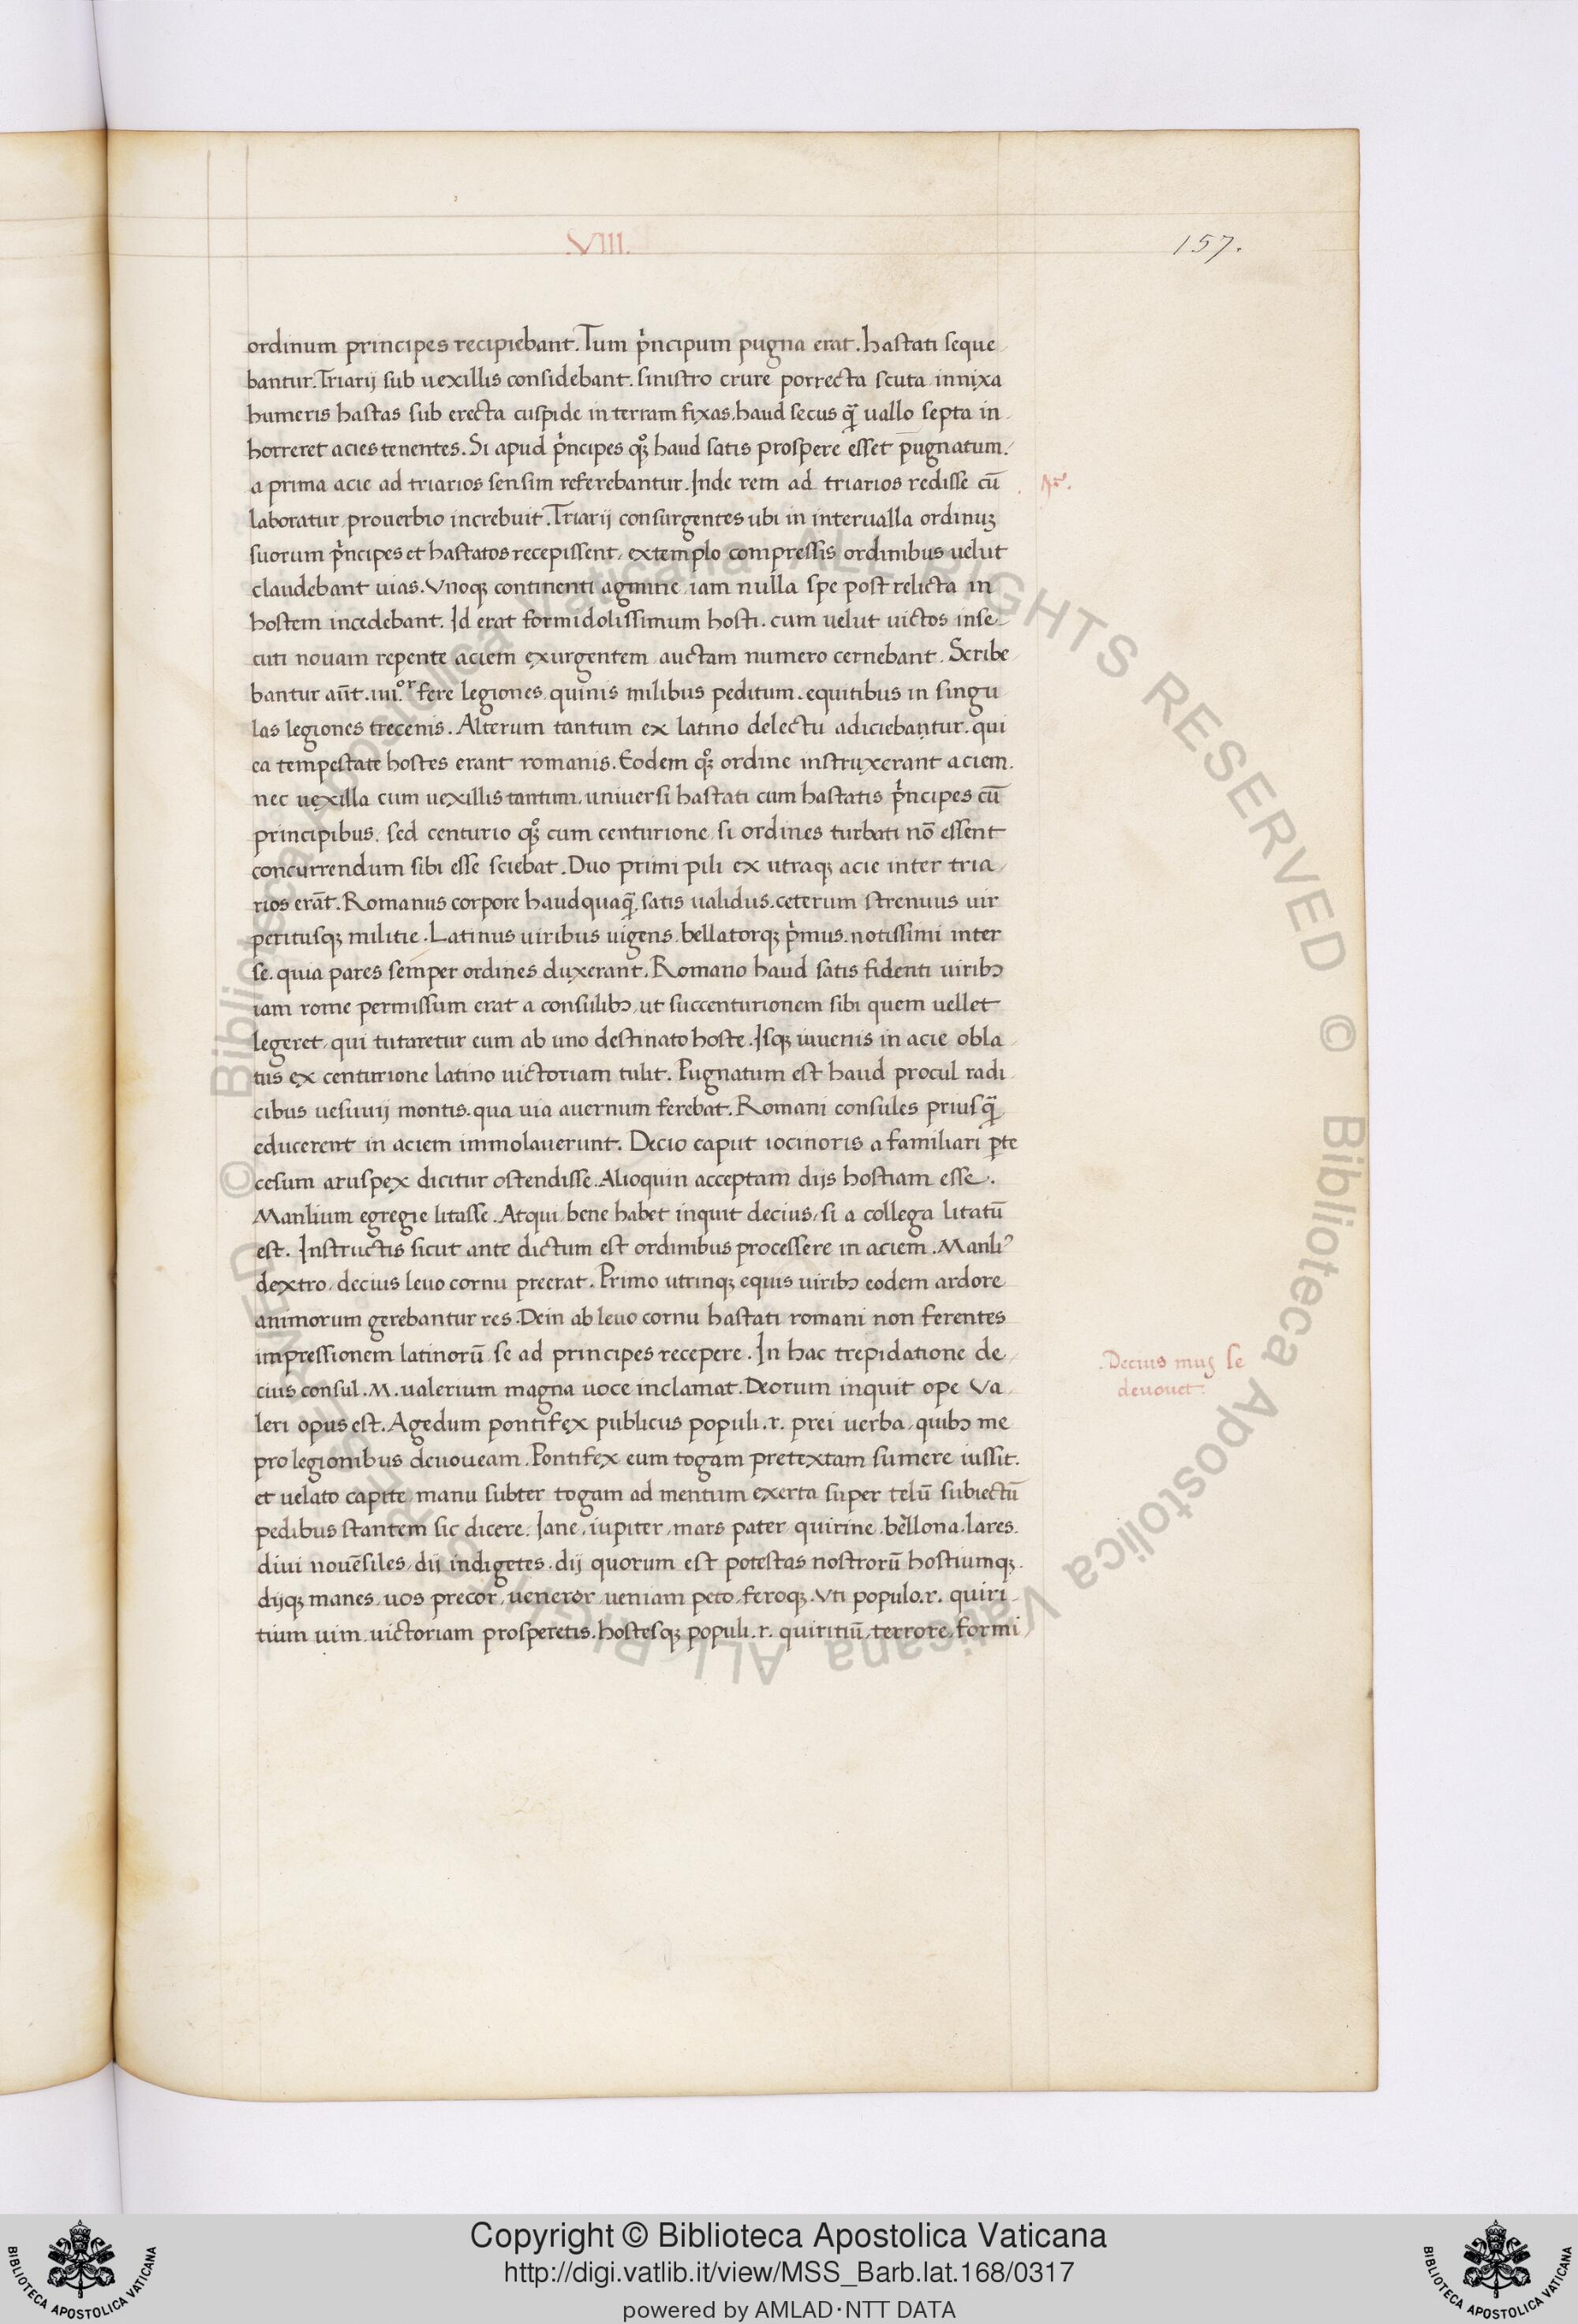 .VIII.
157.
ordinum principes recipiebant. Tum p̓ncipum pugna erat. hastati seque
bantur. Triarij sub uexillis considebant. sinistro crure porrecta scuta innixa
humeris hastas sub erecta cuspide in terram fixas, haud secus q̄ uallo septa in
horreret acies tenentes. Si apud p̓ncipes qꝫ haud satis prospere esset pugnatum.
a prima acie ad triarios sensim referebantur. Inde rem ad triarios redisse cū
laboratur, prouerbio increbuit. Triarij consurgentes ubi in interualla ordinuꝫ
suorum p̓ncipes et hastatos recepissent, extemplo compressis ordinibus uelut
claudebant uias. Vnoqꝫ continenti agmine iam nulla spe post relicta in
hostem incedebant. Id erat formidolissimum hosti. cum uelut uictos inse
cuti nouam repente aciem exurgentem auctam numero cernebant. Scribe
bantur aūt .iiii.or fere legiones, quinis milibus peditum. equitibus in singu
las legiones trecenis. Alterum tantum ex latino delectu adiciebantur. qui
ea tempestate hostes erant romanis. Eodem qꝫ ordine instruxerant aciem.
nec uexilla cum uexillis tantum, uniuersi hastati cum hastatis p̓ncipes cū
principibus. sed centurio qꝫ cum centurione, si ordines turbati nō essent
concurrendum sibi esse sciebat. Duo primi pili ex utraqꝫ acie inter tria
rios erāt. Romanus corpore haud quaq̄ satis ualidus. ceterum strenuus uir
peritusqꝫ militie. Latinus uiribus uigens, bellatorqꝫ p̓mus. notissimi inter
se. quia pares semper ordines duxerant. Romano haud satis fidenti uiribꝫ
iam rome permissum erat a consulibꝫ, ut succenturionem sibi quem uellet
legeret, qui tutaretur eum ab uno destinato hoste. Isqꝫ iuuenis in acie obla
tus ex centurione latino uictoriam tulit. Pugnatum est haud procul radi
cibus uesuuij montis. qua uia auernum ferebat. Romani consules priusq̄
educerent in aciem immolauerunt. Decio caput iocinoris a familiari ꝑte
cesum aruspex dicitur ostendisse. Alioquin acceptam dijs hostiam esse.
Manlium egregie litasse. Atqui bene habet inquit decius, si a collega litatū
est. Instructis sicut ante dictum est ordinibus processere in aciem. Manliꝰ
dextro, decius leuo cornu preerat. Primo utrinqꝫ equis uiribꝫ eodem ardore
animorum gerebantur res. Dein ab leuo cornu hastati romani non ferentes
impressionem latinorū se ad principes recepere. In hac trepidatione de
cius consul .M. ualerium magna uoce inclamat. Deorum inquit ope Va
leri opus est. Agedum pontifex publicus populi .r. prei uerba, quibꝫ me
pro legionibus deuoueam. Pontifex eum togam pretextam sumere iussit.
et uelato capite, manu subter togam ad mentum exerta super telū subiectū
pedibus stantem sic dicere. Iane, iupiter, mars pater, quirine, bellona, lares.
diui nouēsiles, dii indigetes, dij quorum est potestas nostrorū hostiumqꝫ.
dijqꝫ manes, uos precor, ueneror, ueniam peto, feroqꝫ. Vti populo .r. quiri
tium uim, uictoriam prosperetis. hostesqꝫ populi .r. quiritiū, terrore, formi
.Decius mus se
deuouet.
© Biblioteca Apostolica Vaticana ALL RIGHTS RESERVED © Biblioteca Apostolica Vaticana ALL RIGHTS RESERVED
Copyright © Biblioteca Apostolica Vaticana
http://digi.vatlib.it/view/MSS_Barb.lat.168/0317
powered by AMLAD·NTT DATA
BIBLIOTECA APOSTOLICA VATICANA
BIBLIOTECA APOSTOLICA VATICANA